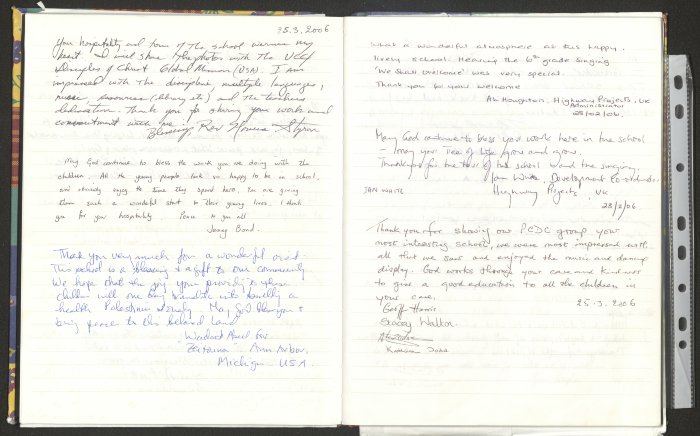 25.3.2006
Your hospitality and tour of the school warms my
heart. I will share the photos with the UCC/
Disciples of Christ Global Mission (USA). I am
impressed with the discipline, multiple languages,
music, resources (library etc) and the teachers
dedication. Thank you for sharing your work and
commitment with me.
Blessings, Rev
May God continue to bless the work you are doing with the
children. All the young people look so happy to be in school,
and clearly enjoy the time they spend here. You are giving
them such a wonderful start to their young lives. Thank
you for your hospitality. Peace to you all.
Jenny Bond.
Thank you very much for a wonderful visit.
This school is a blessing & gift to our community
We hope that the joy your providing these
children will one day translate into
health Palestinian May God bless you &
bring peace to this beloved Land
for
"Zeitouna" Ann Arbor,
Michigan USA.
What a wonderful atmosphere at this happy,
lively school. Hearing the 6th grade singing
'We Shall Overcome' was very special.
Thank you for your welcome
Houghton, Highway Projects, UK
Administrator
28/02/06.
May God continue to bless your work here in the school
- may your Tree of Life grow and grow.
Thank you for the tour of the school and the singing.
Jan White, Development Co-ordinator
JAN WHITE
Highway Projects, UK
28/2/06
Thank you for showing our PCDC group your
most interesting school, we were most impressed with
all that we saw and enjoyed the music and dance
display. God works through your care and kindness
to give a good education to all the children in
your care.
25-3-2006
Geoff Harris
Stacey Walker.